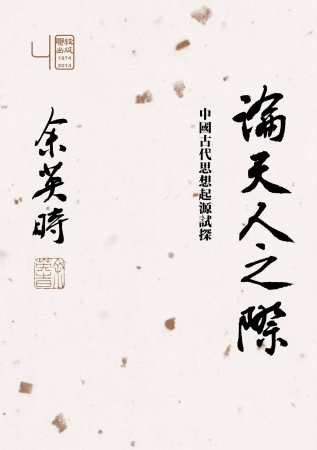 論天人之際
中國古代思想起源試探
余英時
聯經出版
1974
2014